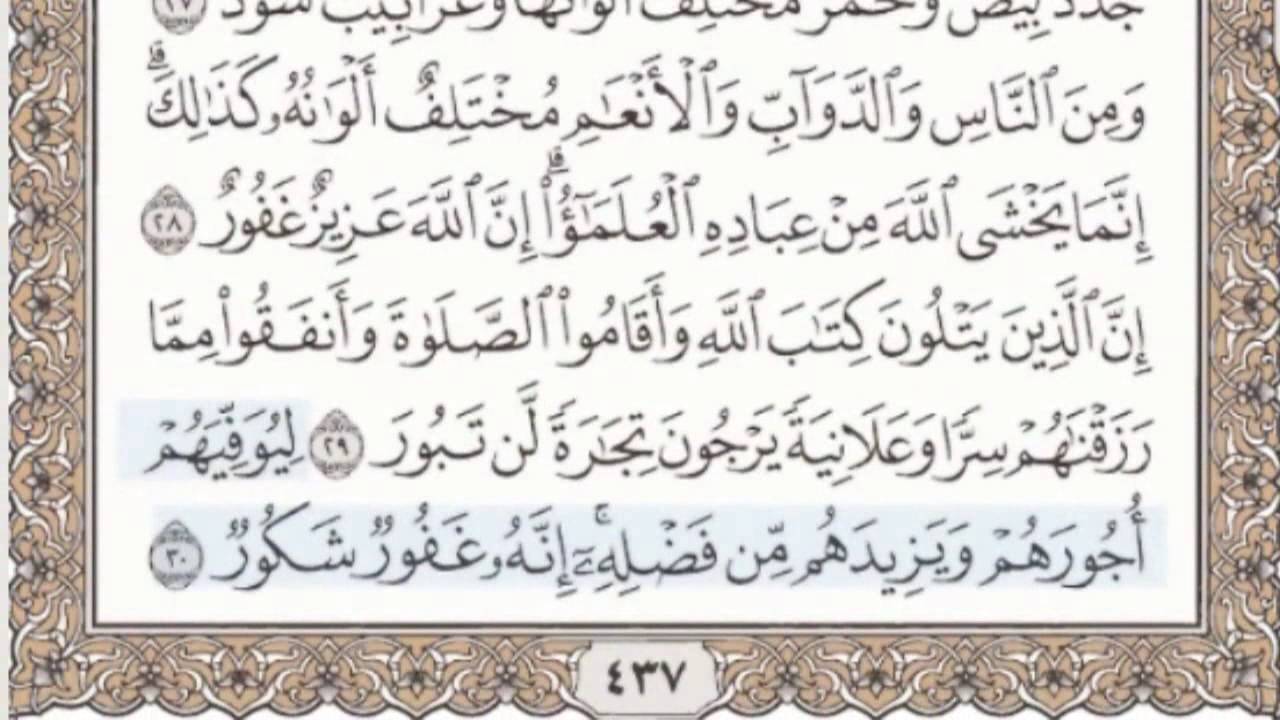 جُدَدٌۢ بِيضٌ وَحُمْرٌ مُّخْتَلِفٌ أَلْوَٰنُهَا وَغَرَابِيبُ سُودٌ ٢٧
وَمِنَ ٱلنَّاسِ وَٱلدَّوَآبِّ وَٱلْأَنْعَٰمِ مُخْتَلِفٌ أَلْوَٰنُهُۥ كَذَٰلِكَۗ
إِنَّمَا يَخْشَى ٱللَّهَ مِنْ عِبَادِهِ ٱلْعُلَمَٰٓؤُا۟ۗ إِنَّ ٱللَّهَ عَزِيزٌ غَفُورٌ ٢٨
إِنَّ ٱلَّذِينَ يَتْلُونَ كِتَٰبَ ٱللَّهِ وَأَقَامُوا۟ ٱلصَّلَوٰةَ وَأَنفَقُوا۟ مِمَّا
رَزَقْنَٰهُمْ سِرًّا وَعَلَانِيَةً يَرْجُونَ تِجَٰرَةً لَّن تَبُورَ ٢٩ لِيُوَفِّيَهُمْ
أُجُورَهُمْ وَيَزِيدَهُم مِّن فَضْلِهِۦٓۚ إِنَّهُۥ غَفُورٌ شَكُورٌ ٣٠
٤٣٧